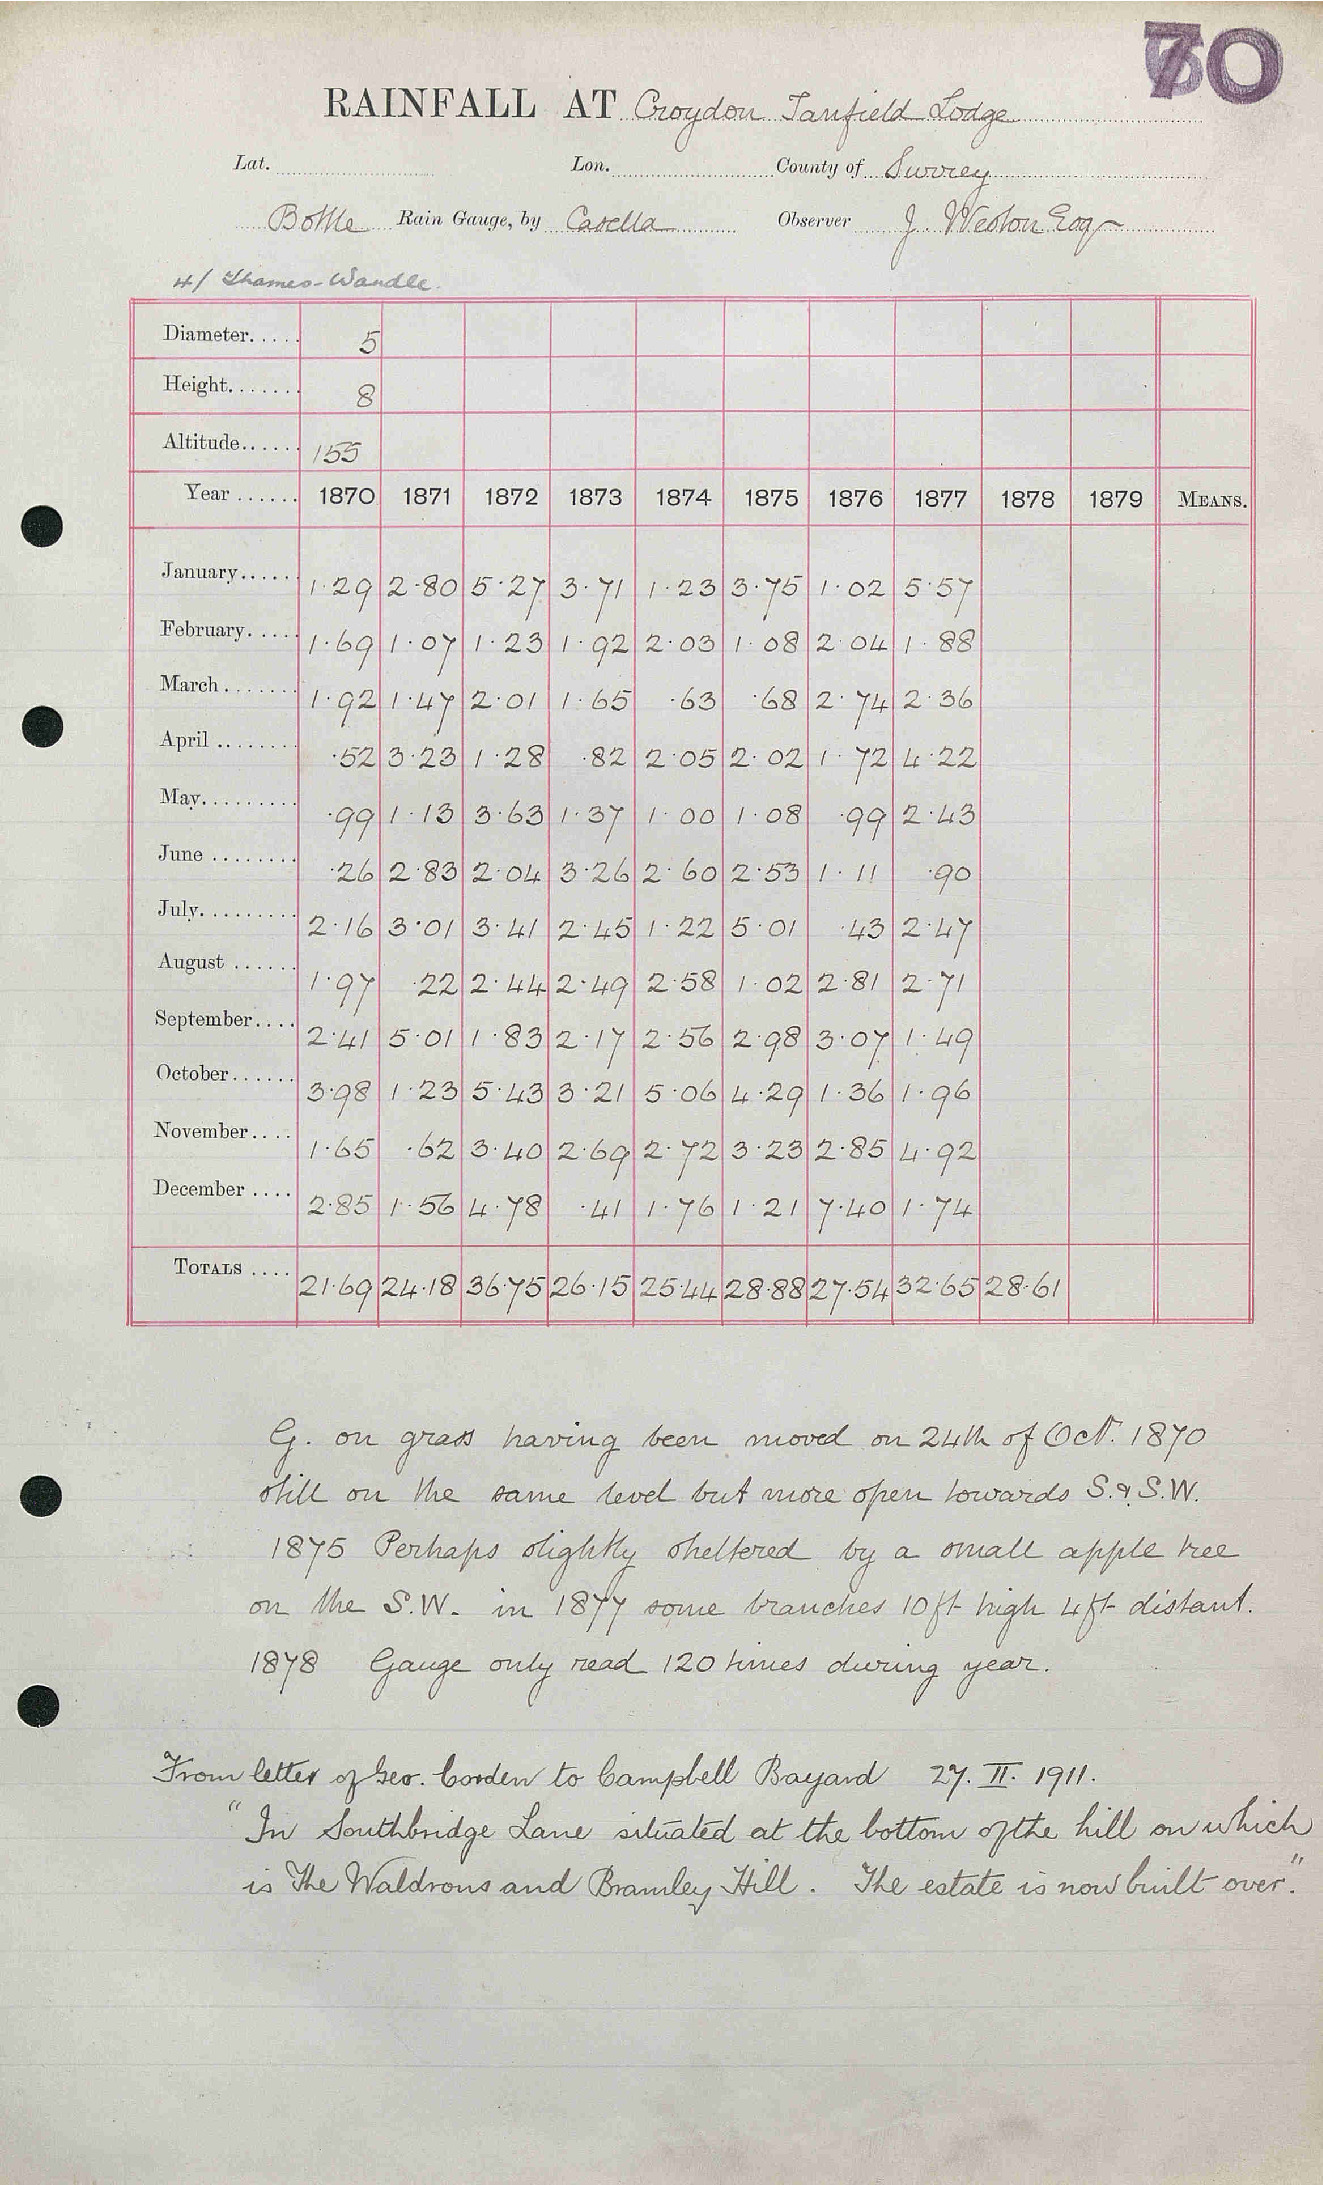 70
RAINFALL AT Croydon Tanfield Lodge
Lat. Lon. County of Surrey
Bottle Rain Gauge, by Casella Observer J. Weston Esq
4/ Thames-Wandle.
Diameter..... 5
Height....... 8
Altitude...... 155
Year ...... 1870 1871 1872 1873 1874 1875 1876 1877 1878 1879 MEANS.
January...... 1·29 2·80 5·27 3·71 1·23 3·75 1·02 5·57
February..... 1·69 1·07 1·23 1·92 2·03 1·08 2·04 1·88
March....... 1·92 1·47 2·01 1·65 ·63 ·68 2·74 2·36
April ........ ·52 3·23 1·28 ·82 2·05 2·02 1·72 4·22
May......... ·99 1·13 3·63 1·37 1·00 1·08 ·99 2·43
June ........ ·26 2·83 2·04 3·26 2·60 2·53 1·11 ·90
July......... 2·16 3·01 3·41 2·45 1·22 5·01 ·43 2·47
August ...... 1·97 ·22 2·44 2·49 2·58 1·02 2·81 2·71
September.... 2·41 5·01 1·83 2·17 2·56 2·98 3·07 1·49
October...... 3·98 1·23 5·43 3·21 5·06 4·29 1·36 1·96
November.... 1·65 ·62 3·40 2·69 2·72 3·23 2·85 4·92
December .... 2·85 1·56 4·78 ·41 1·76 1·21 7·40 1·74
TOTALS .... 21·69 24·18 36·75 26·15 25·44 28·88 27·54 32·65 28·61
G. on grass having been moved on 24th of Oct. 1870
still on the same level but more open towards S. & S.W.
1875 Perhaps slightly sheltered by a small apple tree
on the S.W. in 1877 some branches 10ft high 4ft distant.
1878 Gauge only read 120 times during year.
From letter of Geo. Corden to Campbell Bayard 27. II. 1911.
"In Southbridge Lane situated at the bottom of the hill on which
is The Waldrons and Bramley Hill. The estate is now built over."